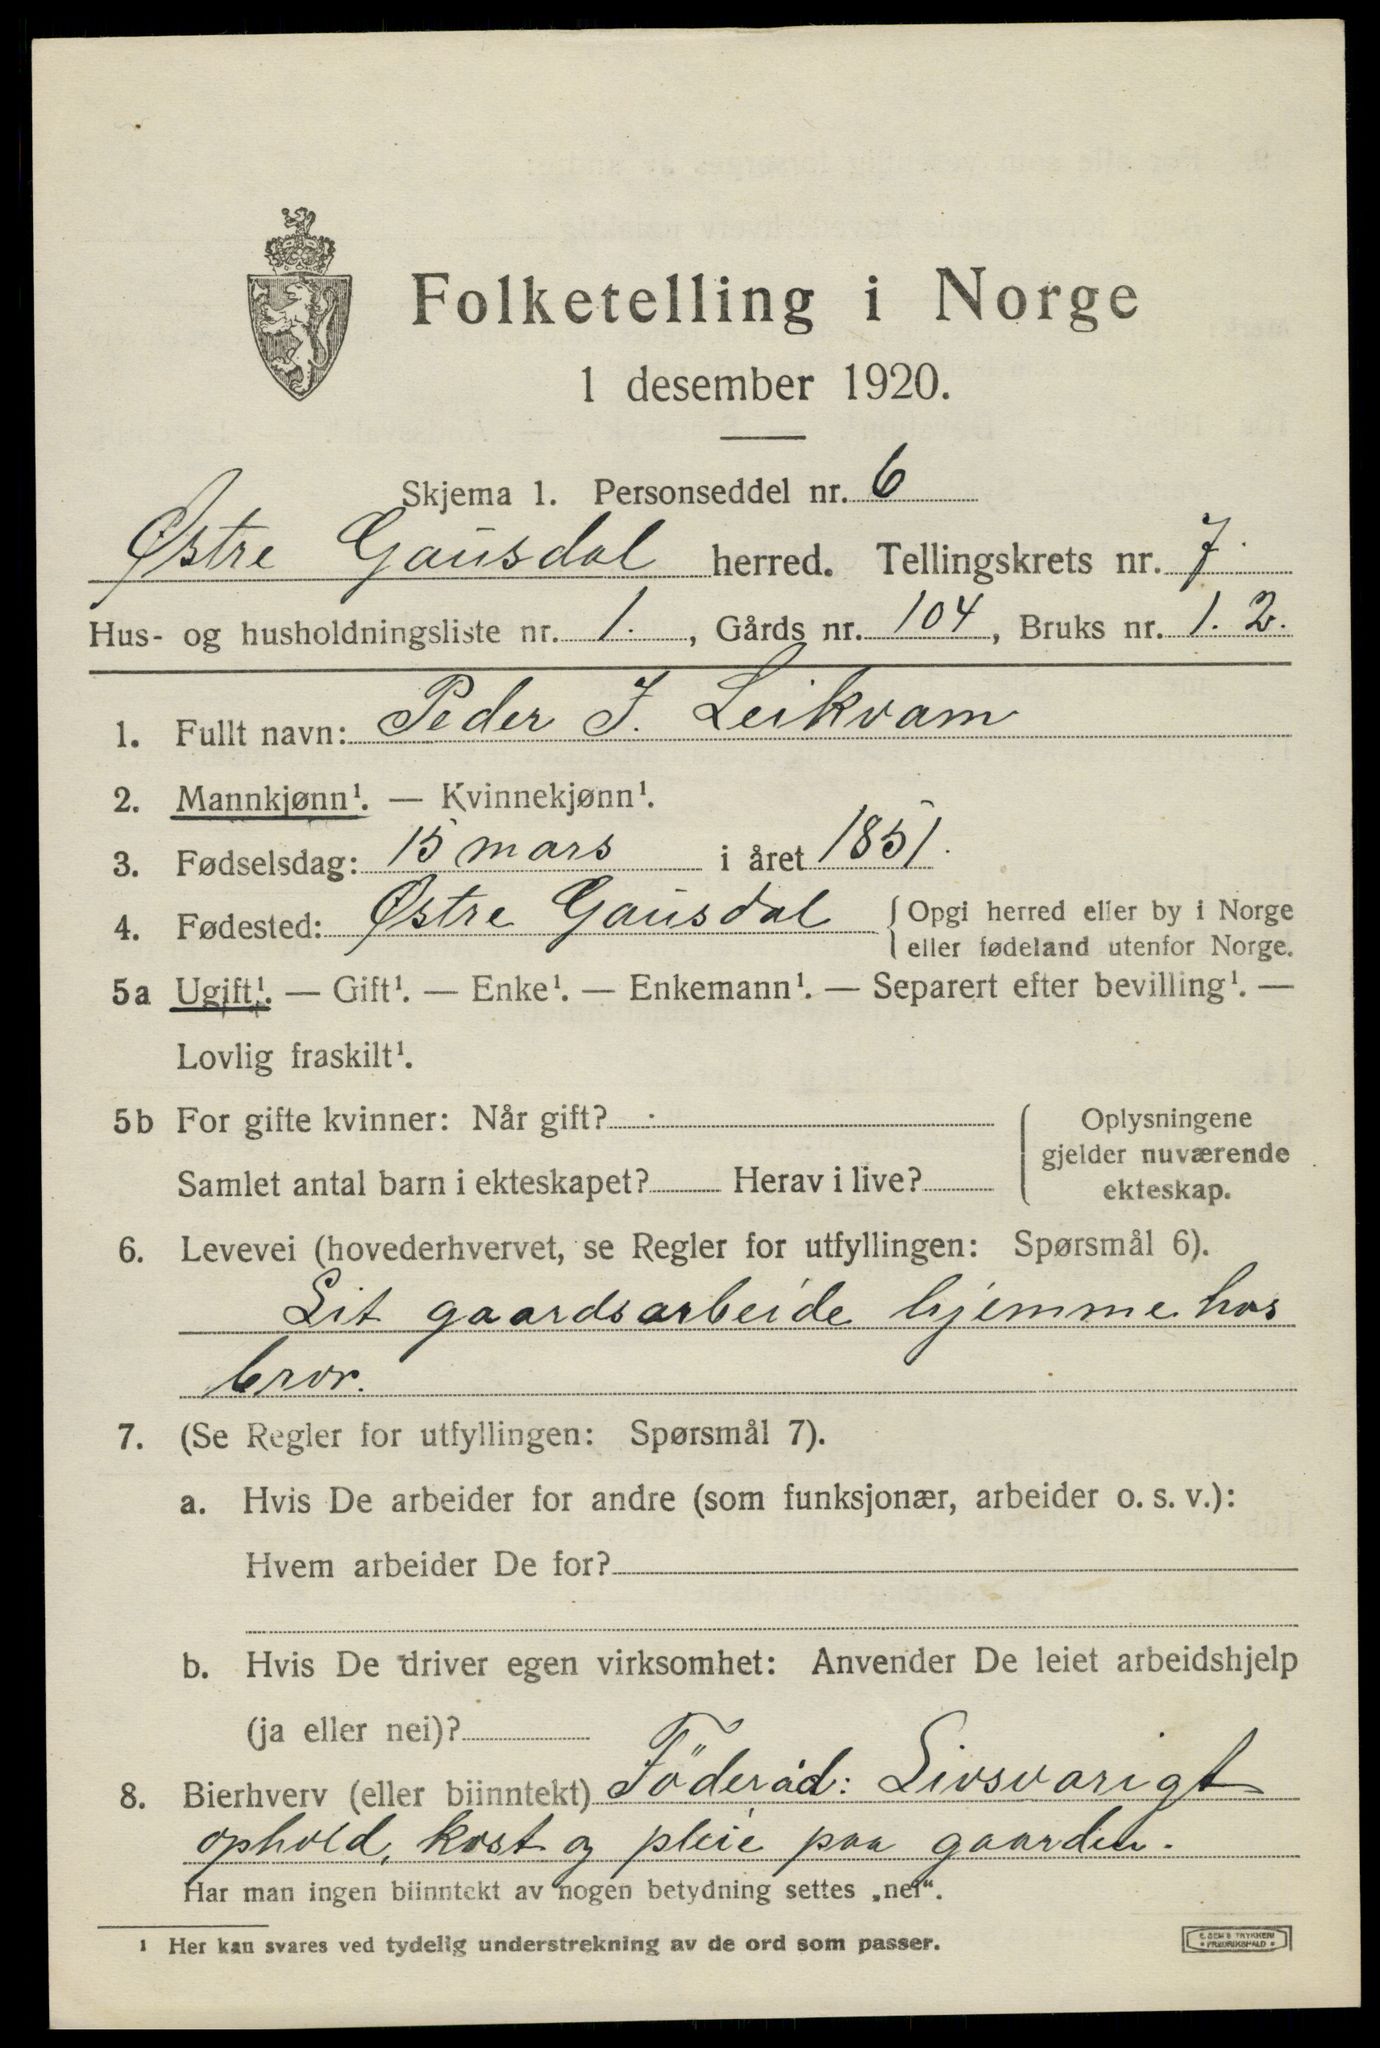 Folketelling i Norge
1 desember 1920.
Skjema 1. Personseddel nr. 6
Østre Gausdal herred. Tellingskrets nr. 7.
Hus- og husholdningsliste nr. 1. , Gårds nr. 104, Bruks nr. 1. 2.
1. Fullt navn: Peder J. Leikvam
2. Mannkjønn¹. — Kvinnekjønn¹.
3. Fødselsdag: 15 mars i året 1851.
4. Fødested: Østre Gausdal { Opgi herred eller by i Norge
eller fødeland utenfor Norge.
5a Ugift¹. — Gift¹. — Enke¹. — Enkemann¹. — Separert efter bevilling¹. —
Lovlig fraskilt¹.
5b For gifte kvinner: Når gift?
Samlet antal barn i ekteskapet? Herav i live?
Oplysningene
gjelder nuværende
ekteskap.
6. Levevei (hovederhvervet, se Regler for utfyllingen: Spørsmål 6).
Lit gaardsarbeide hjemme hos
bror.
7. (Se Regler for utfyllingen: Spørsmål 7).
a. Hvis De arbeider for andre (som funksjonær, arbeider o. s. v.):
Hvem arbeider De for?
b. Hvis De driver egen virksomhet: Anvender De leiet arbeidshjelp
(ja eller nei)?
8. Bierhverv (eller biinntekt) Föderåd: Livsvarigt
ophold, kost og pleie paa gaarden.
Har man ingen biinntekt av nogen betydning settes „nei“.
¹ Her kan svares ved tydelig understrekning av de ord som passer.
E. SEM'S TRYKKERI
FREDRIKSHALD